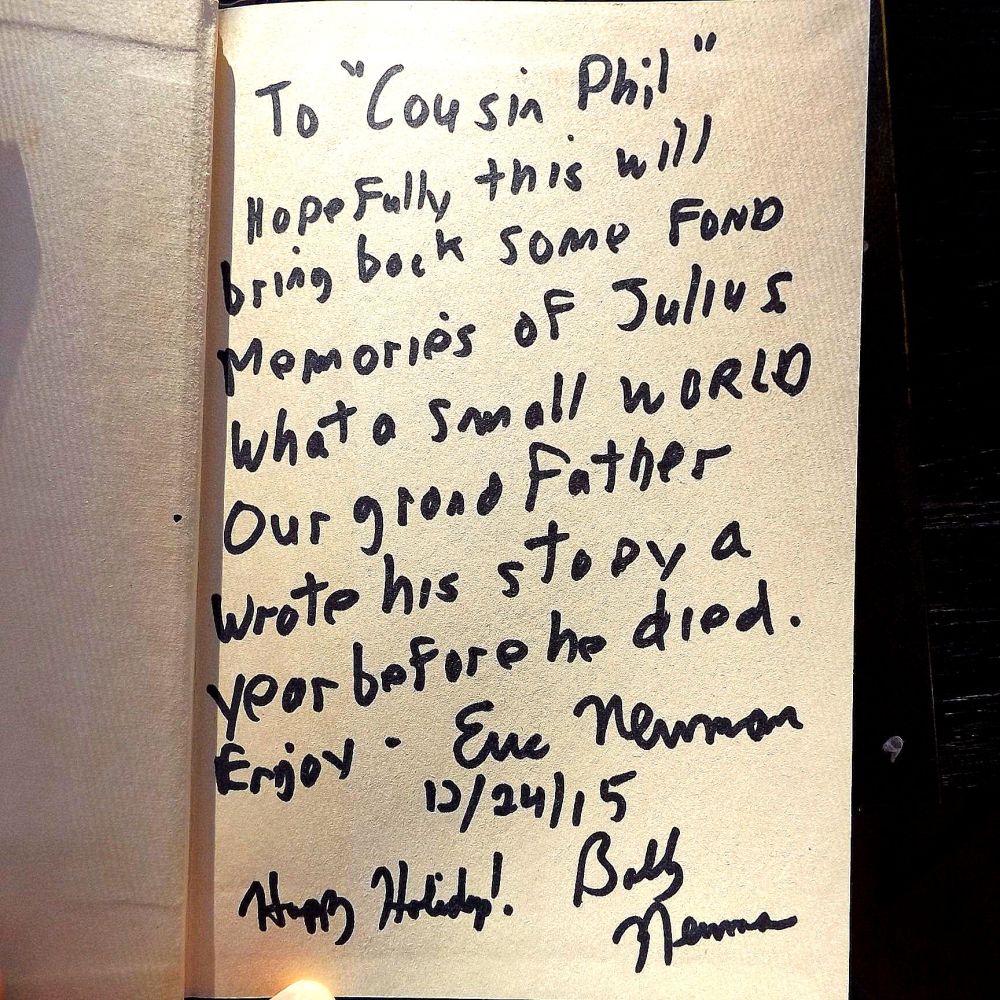 To "Cousin Phil"
Hopefully this will
bring back some FOND
Memories of Julius
What a small WORLD
Our grand Father
wrote his story a
year before he died.
Enjoy - Eric Newman
12/24/15
Happy Holidays!
Newman